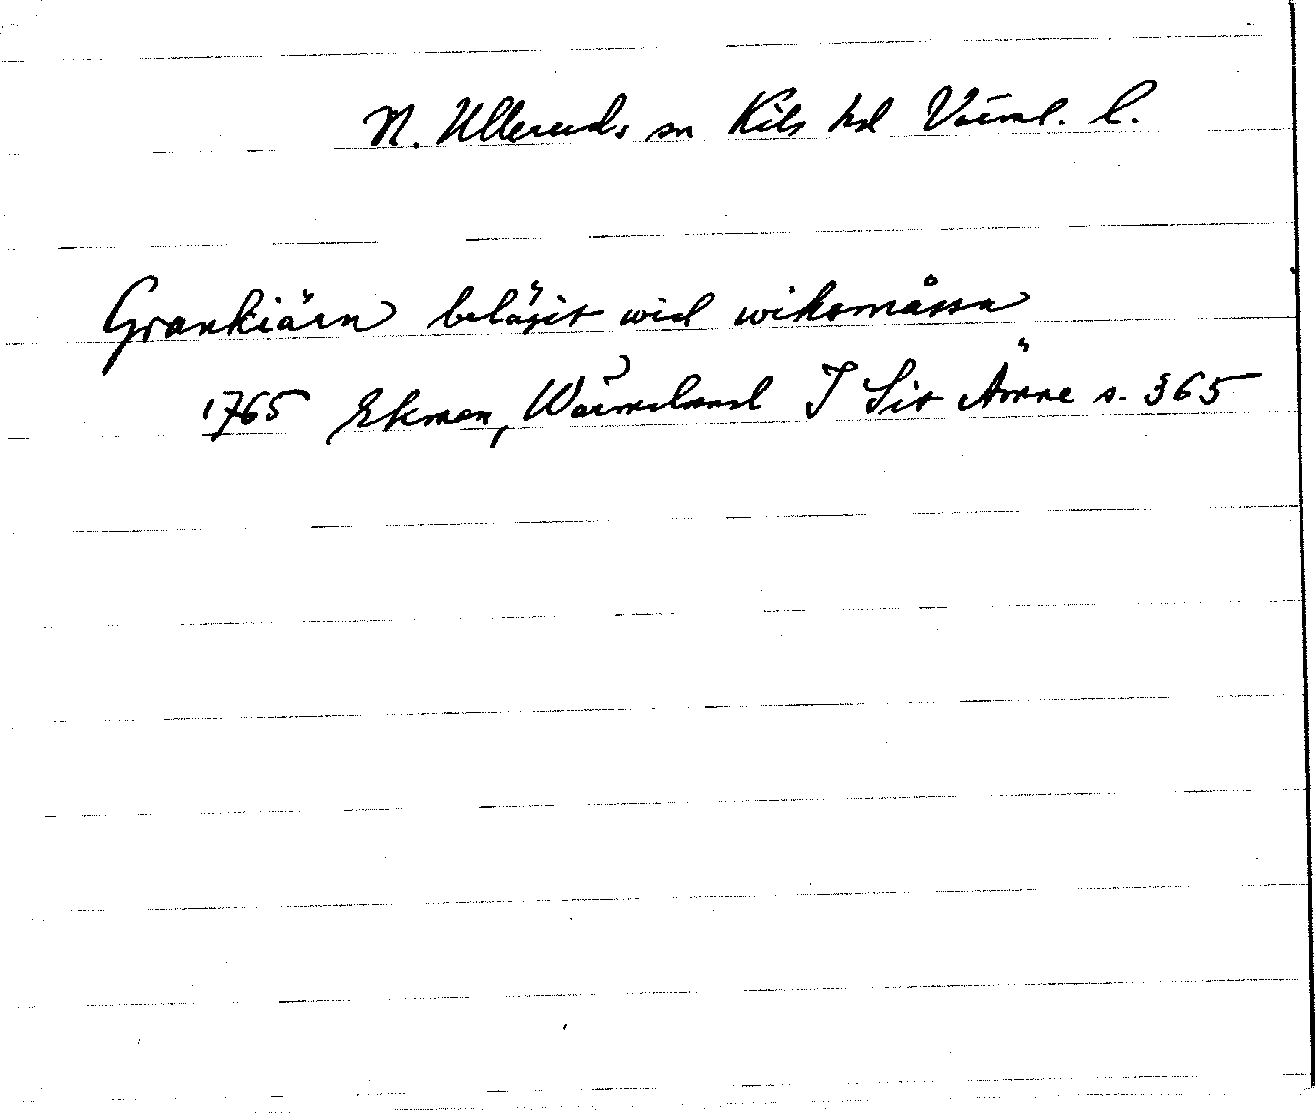 N. Ulleruds sn Kils hd Värml. l.
Grankiärn belägit wid wiksmåssa
1765 Ekman, Wärmeland I Sit Ämne s. 365